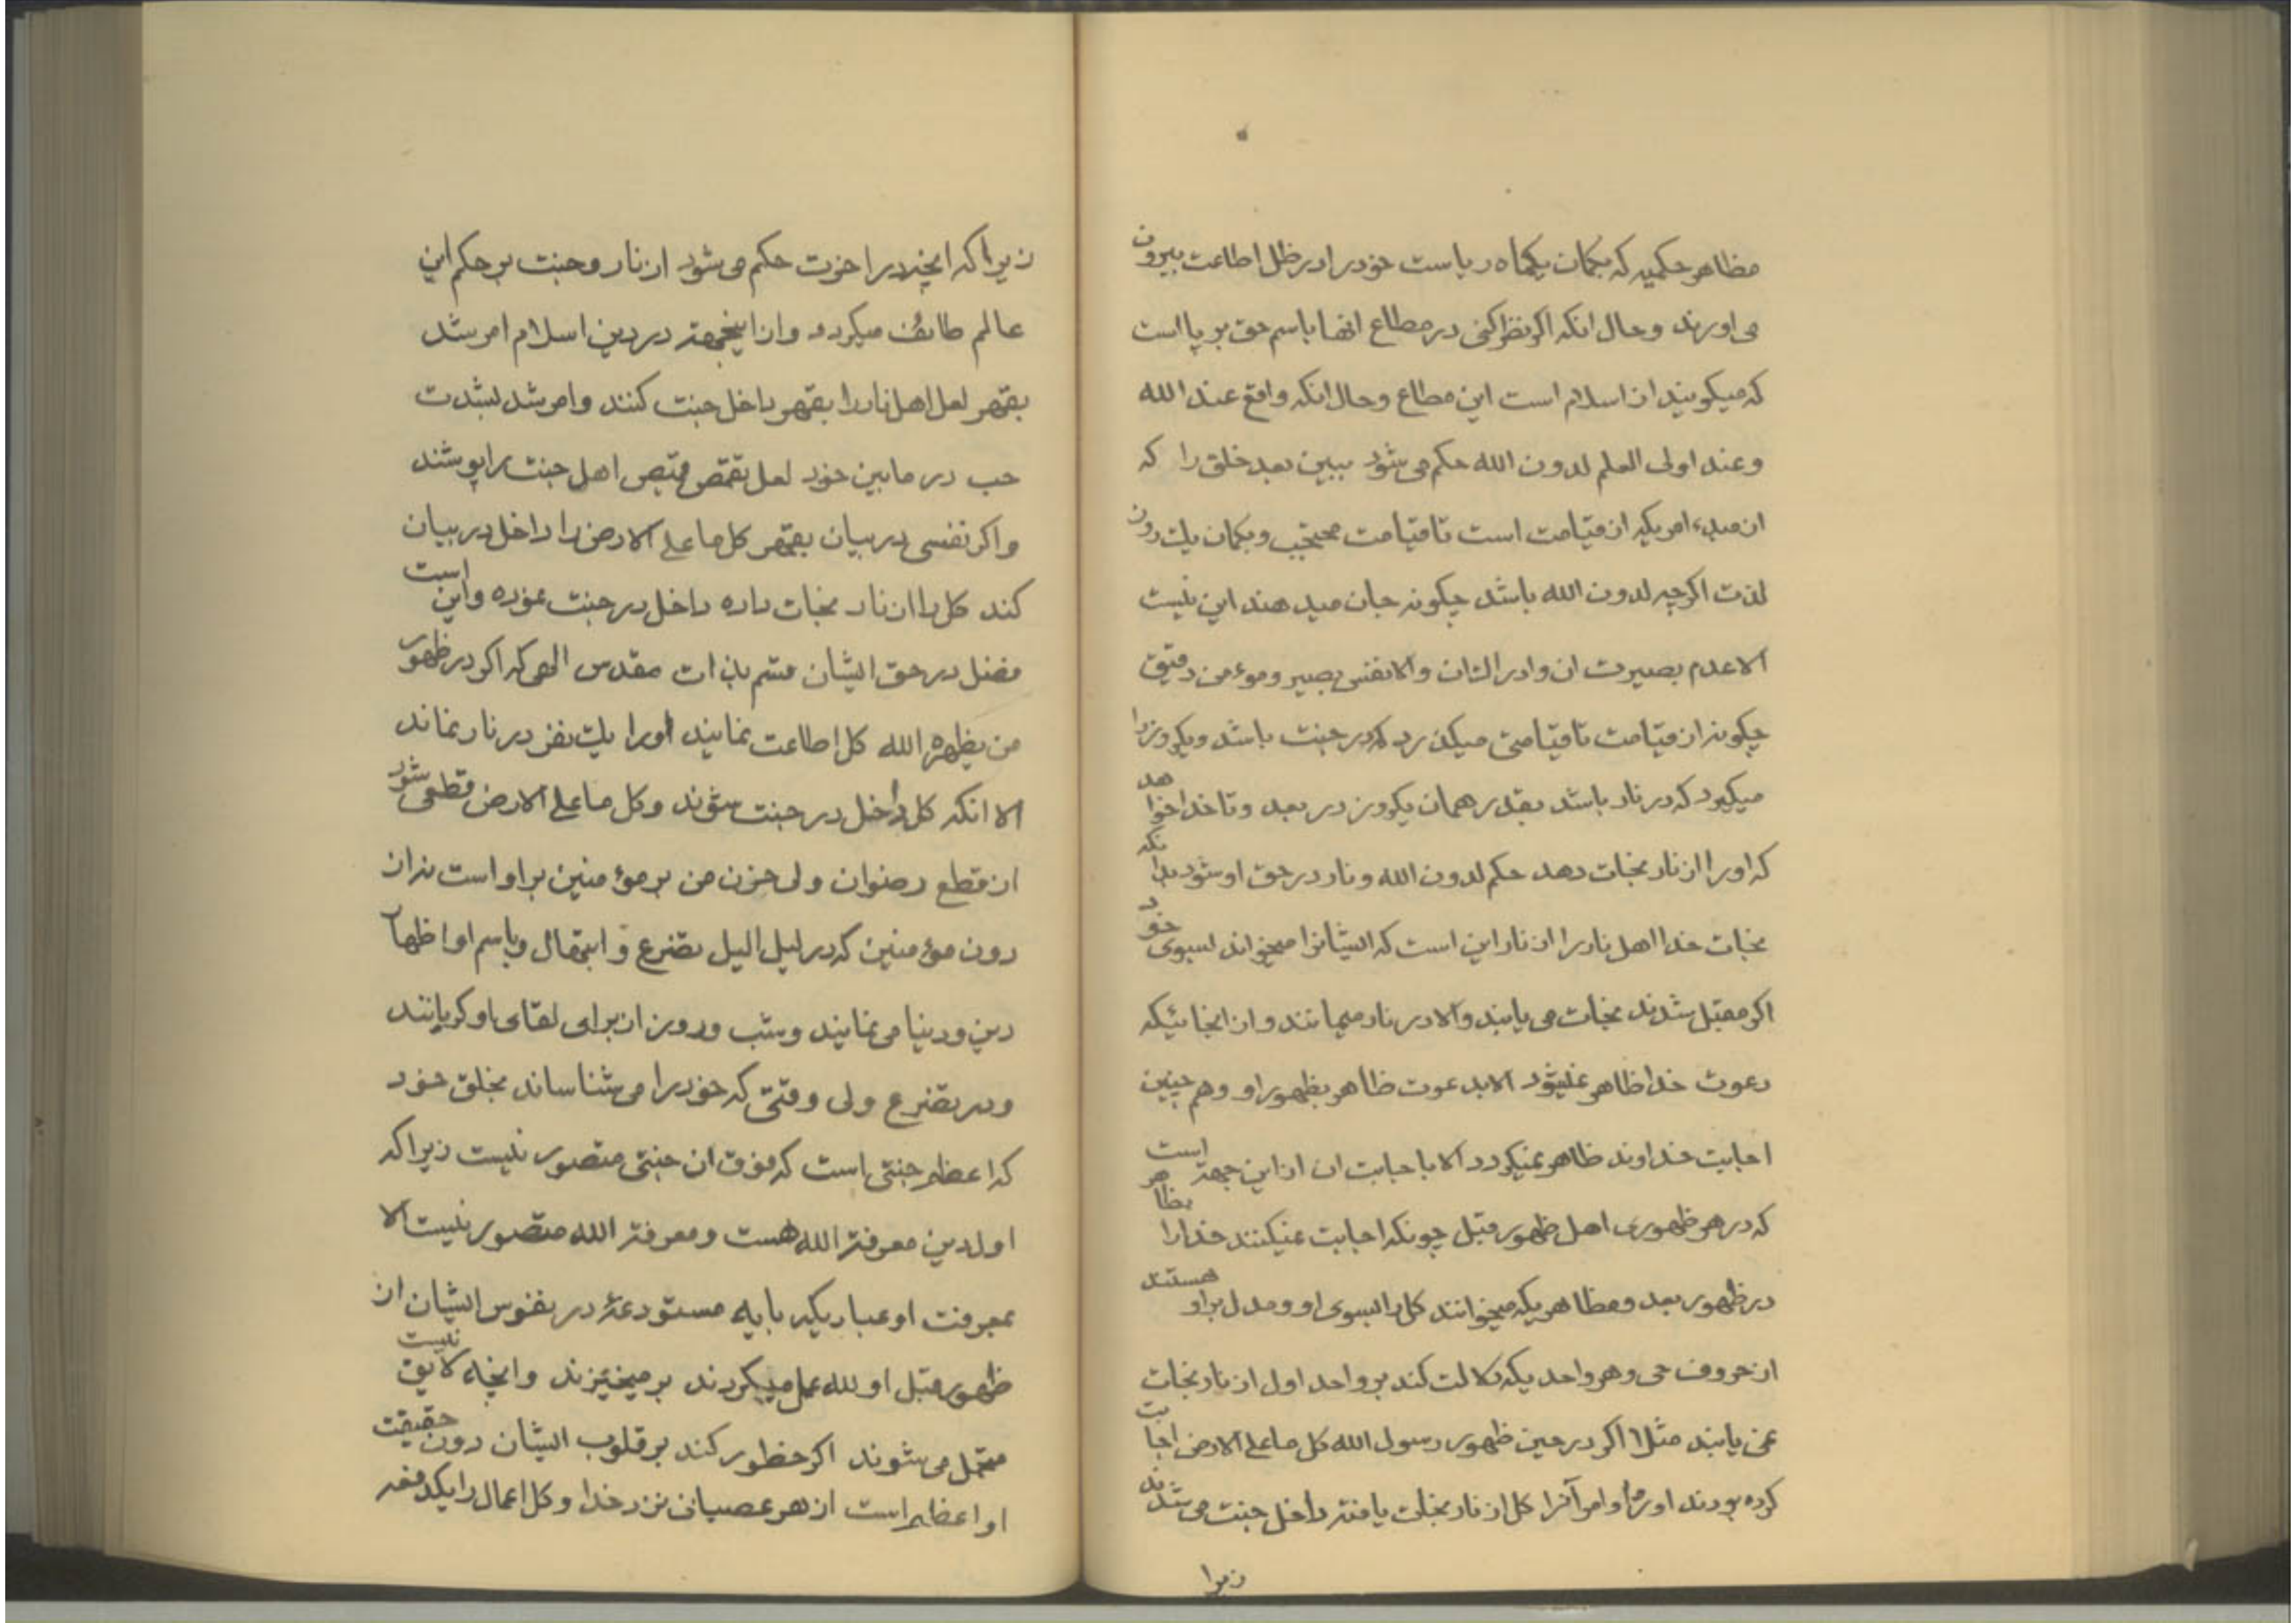 مظاهر حکمیه که بکمان یکماه ریاست خود را در ظل اطاعت بیرون
می اورند وحال انکه اکر نظر کنی در مطاع انها باسم حق بر پا است
که میکویند از اسلام است این مطاع وحال انکه واقع عند الله
وعند اولی العلم لدون الله حکم می شود ببین بعد خلق را که
از مبدء امریکه از قیامت است تا قیامت محتجب وبکمان یک دون
لذت اکرچه لدون الله باشد چکونه جان میدهند این نیست
الا عدم بصیرت ان وادراک ان والا نفس بصیر وموءمن دقیق
چکونه از قیامت تا قیامتی میکذرد که در جنت باشد ویکروز را
میکیرد که در نار باشد بقدر همان یکروز در بعد وتا خدا خواهد
که اورا از نار نجات دهد حکم لدون الله ونار در حق او شود بدانکه
نجات خدا اهل نار را از نار این است که ایشانرا میخواند بسوی خود
اکر مقبل شدند نجات می یابند والا در نار میمانند واز انجائیکه
دعوت خدا ظاهر نمیشود الا بدعوت ظاهر بظهور او وهم چنین
اجابت خداوند ظاهر نمیکردد الا باجابت ان از این جهة است
که در هر ظهوری اهل ظهور قبل چونکه اجابت نمیکنند خدا را مظاهر
در ظهور بعد ومظاهریکه میخوانند کل را بسوی او ومدل بر او هستند
از حروف حی وهر واحدیکه دلالت کند بر واحد اول از نار نجات
نمی یابند مثلا اکر در حین ظهور رسول الله کل ما علی الارض اجابت
کرده بودند اورا واوامر آنرا کل از نار نجات یافته داخل جنت می شدند
زیرا
زیرا که انچه در اخرت حکم می شود از نار وجنت بر حکم این
عالم طائف میکردد واز اینجهة در دین اسلام امر شد
بقهر لعل اهل نار را بقهر داخل جنت کنند وامر شد بشدت
حب در مابین خود لعل تقمص قمیص اهل جنت را پوشند
واکر نفسی در بیان بقهر کل ما علی الارض را داخل در بیان
کند کل را از نار نجات داده داخل در جنت نموده واین است
فضل در حق ایشان قسم بذات مقدس الهی که اکر در ظهور
من یظهره الله کل اطاعت نمایند اورا یک نفر در نار نماند
الا انکه کل داخل در جنت شوند وکل ما علی الارض قطعی شود
از قطع رضوان ولی حزن من بر موء منین براو است نه از
دون موء منین که در لیل الیل بتضرع و ابتهال وباسم او اظهار
دین ودنیا می نمایند وشب وروز از برای لقای او کریانند
ودر تضرع ولی وقتی که خود را می شناساند بخلق خود
که اعظم جنتی است که فوق ان جنتی متصور نیست زیرا که
اول دین معرفة الله هست ومعرفة الله متصور نیست الا
بمعرفت او عبادیکه بایه مستودعهٔ در نفوس ایشان از
ظهور قبل او لله عمل میکردند برمیخیزند وانچه لایق نیست
متحمل می شوند اکر خطور کند بر قلوب ایشان دون حقیقت
او اعظم است از هر عصیانی نزد خدا وکل اعمال را یکدفعه